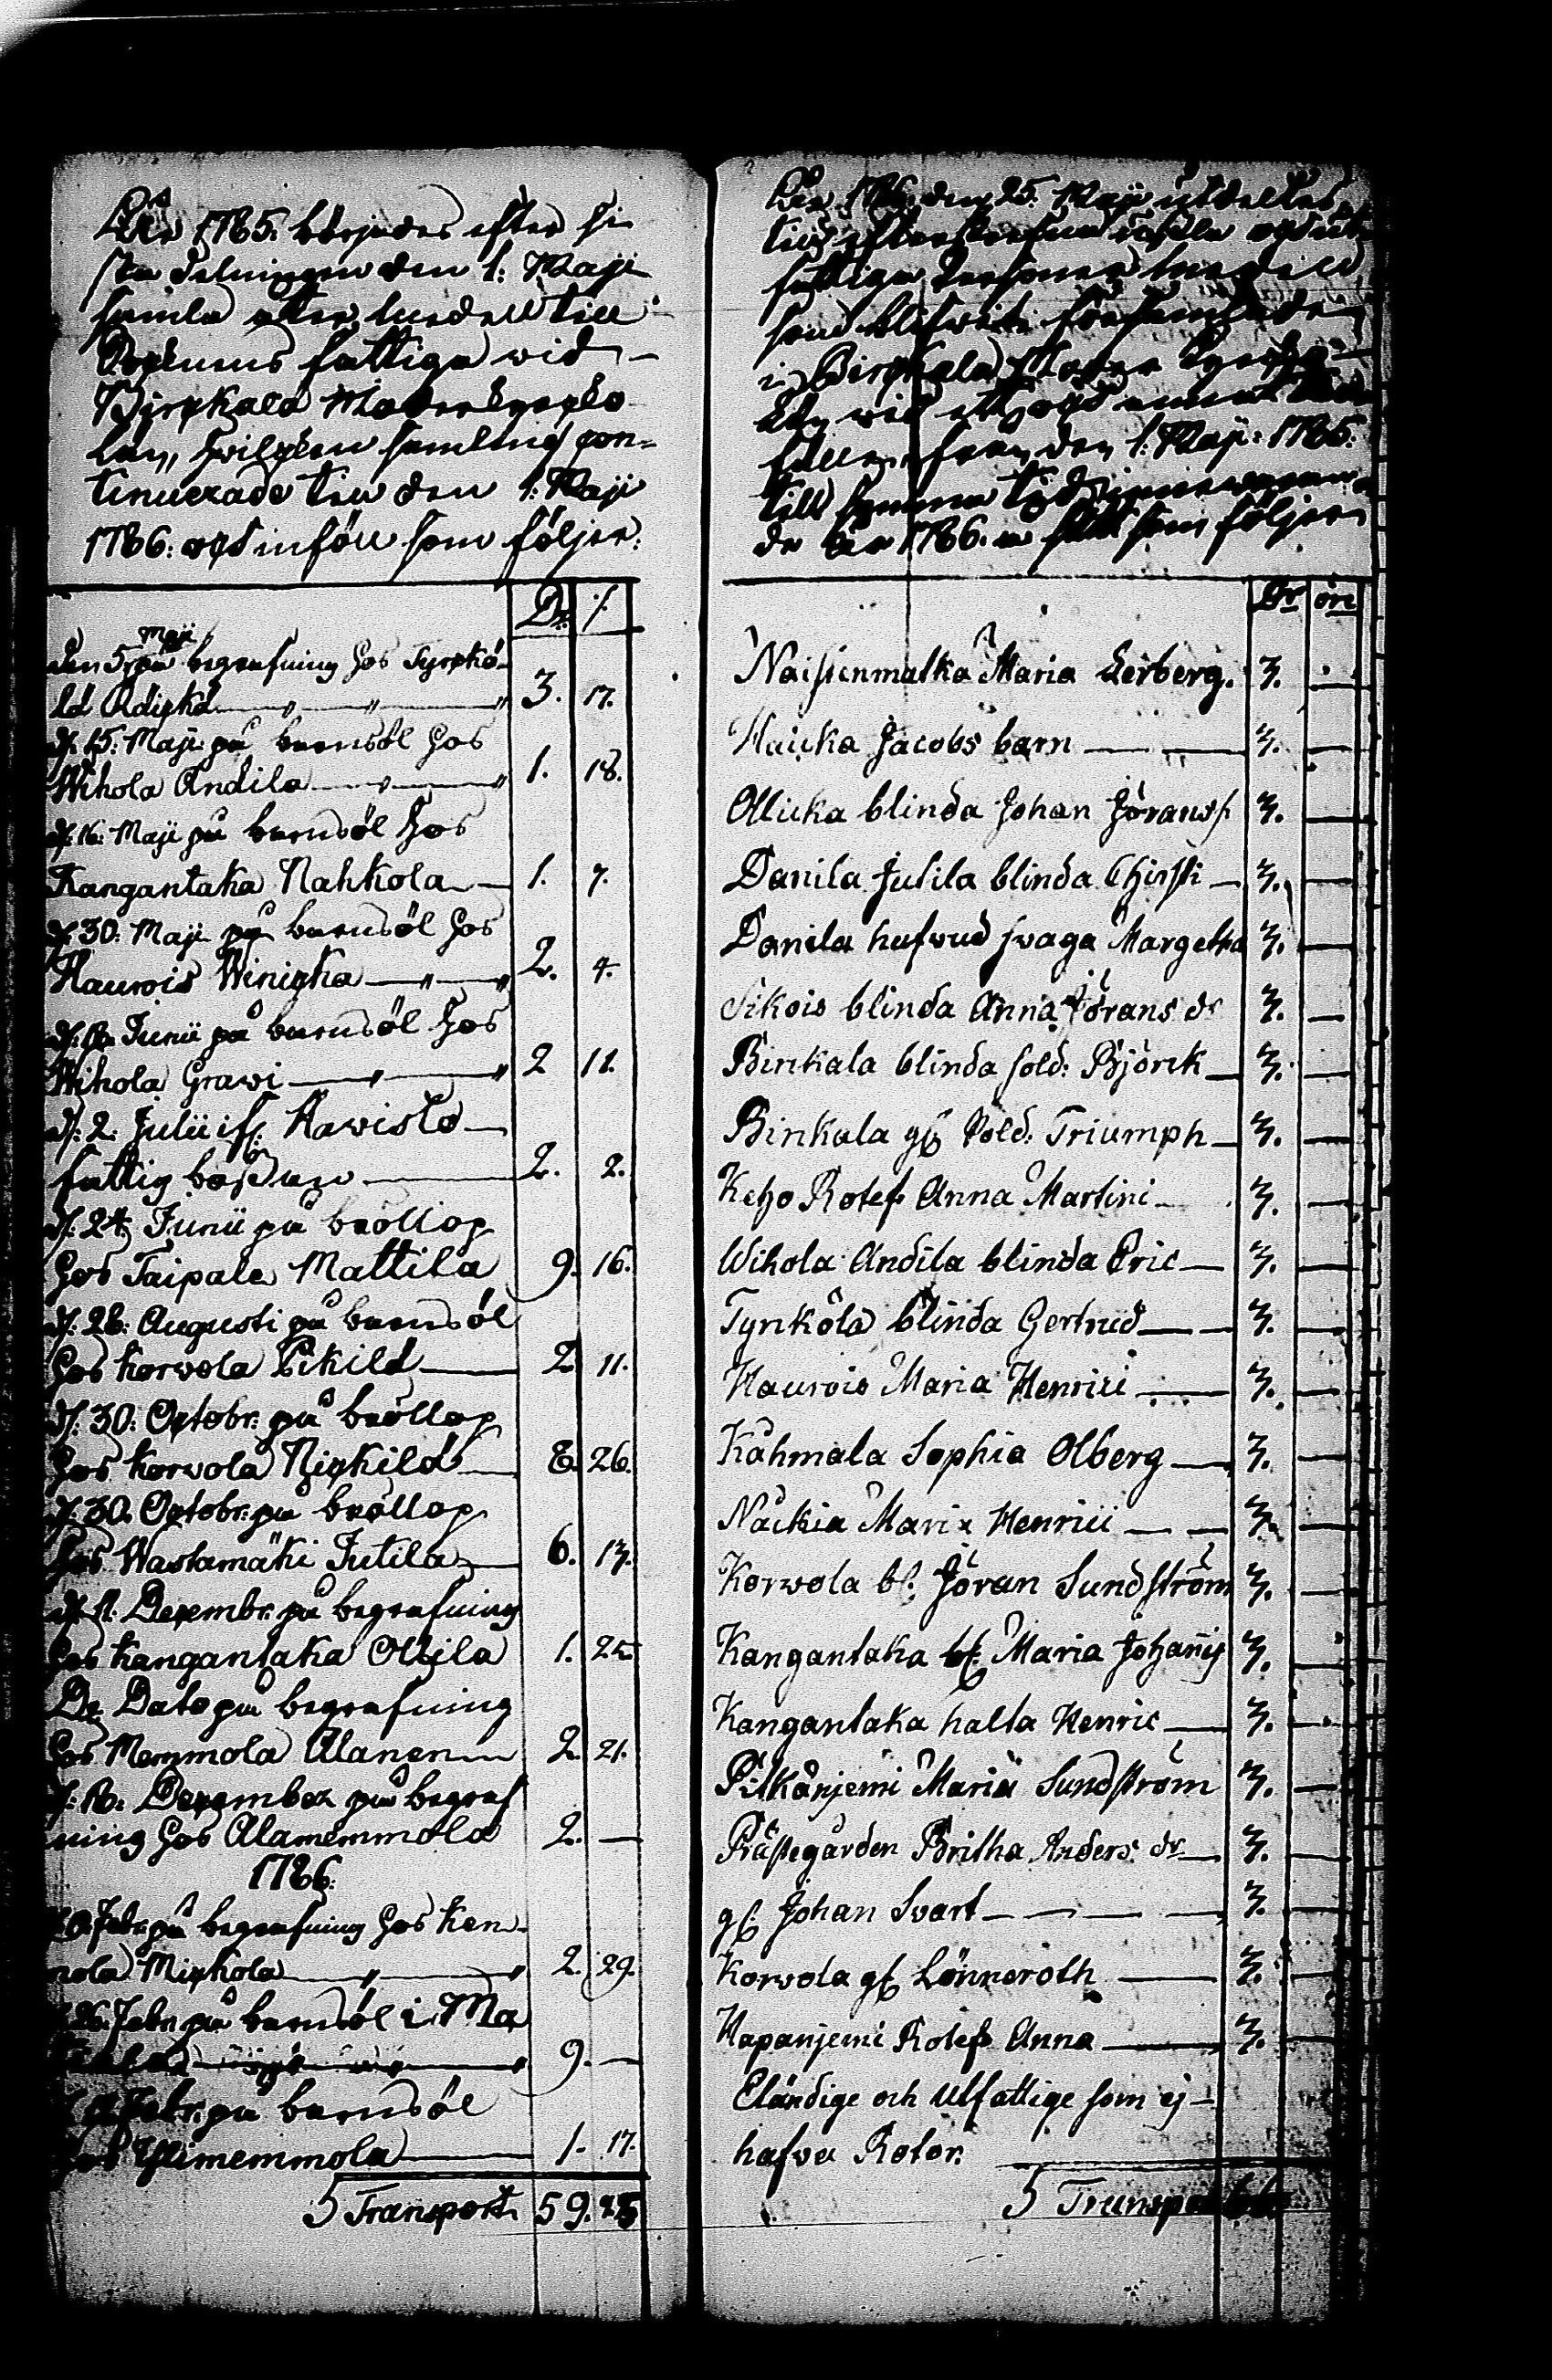 År 1785. börjades efter si
sta delningen den 1: Maji
samla åter medell till
Sochnens fattiga wid
Birckala Moderkyrcko
lan, hvilcken samling con-
tinuerade till den 1: Maji
1786: och inföll som följer:
Dr. /.
den 5 Maji på begrafning hos Tyrckö-
lä Adicka 3. 17.
d: 15: Maji på barnsöl hos
Wihola Andila 1. 18.
d: 16: Maji på barnsöl hos
Kangantaka Nahkola 1. 7.
d: 30: Maji på barnsöl hos
Haurois Winicka 2. 4.
Junii på barnsöl hos
Wihola Grawi 2 11.
d: 2: Julii Kawisto
fattig 2. 2.
d: 24: Junii på bröllop
hos Taipale Mattila 9. 16.
d: 28: Augusti på barnsöl
hos Korvola Pikilä 2. 11.
d: 30: Octobr: på bröllop
hos Korvola Nickilä 8. 26.
d: 30. Octobr: på bröllop
hos Wastamäki Jutila 6. 13.
Decembr. på begrafning
hos Kangantaka Ollila 1. 25.
De Dato på begrafning
hos Memmola Alanen 2. 21.
December på begraf
ning hos Alamemmola 2. —
1786:
Febr. på begrafning hos Ken-
nola Mickola 2. 29.
26. Febr. på barnsöl i Ma
9. —
Febr. på barnsöl
hos Ylimemmola 1. 17.
5 Transport 59.
År 1786. den 25. Maji utdeltes
till efterskrefne usla och ut
fattige Personer medell
som blifwit församlade
i Birckala Moder Kyrcko-
wid ett och annat
fallen, från den 1. Maji: 1785.
till samma tid innewaran
de år 1786. som följer
Dr öre
Naisienmatka Maria Lerberg. 3. —
Haucka Jacobs barn 3. —
Ollicka blinda Johan Jöranss: 3. —
Danila Jutila blinda Chirsti 3. —
Danila hufvud svaga Margetha 3. —
Sikois blinda Anna Jörans dr 3. —
Birckala blinda sold: Björck 3. —
Birckala gl. Sold: Triumph 3. —
Keho Rotes Anna Martini 3. —
Wihola Andila blinda Eric 3. —
Tyrckölä blinda Gertrud 3. —
Haurois Maria Henrici 3. —
Kåhmala Sophia Olberg 3. —
Näckiä Maria Henrici 3. —
Korvola bl: Jöran Sundström 3. —
Kangantaka bl: Maria Johanis 3. —
Kangantaka halta Henric 3. —
Pitkänjemi Maria Sundström 3. —
Prästegården Britha Anders dr 3. —
gl: Johan Svart 3. —
Korvola gl. Lönneroth 3. —
Hapanjemi Rotes Anna 3. —
Eländige och Utfattige som ej
hafva Rotor.
5 Transport